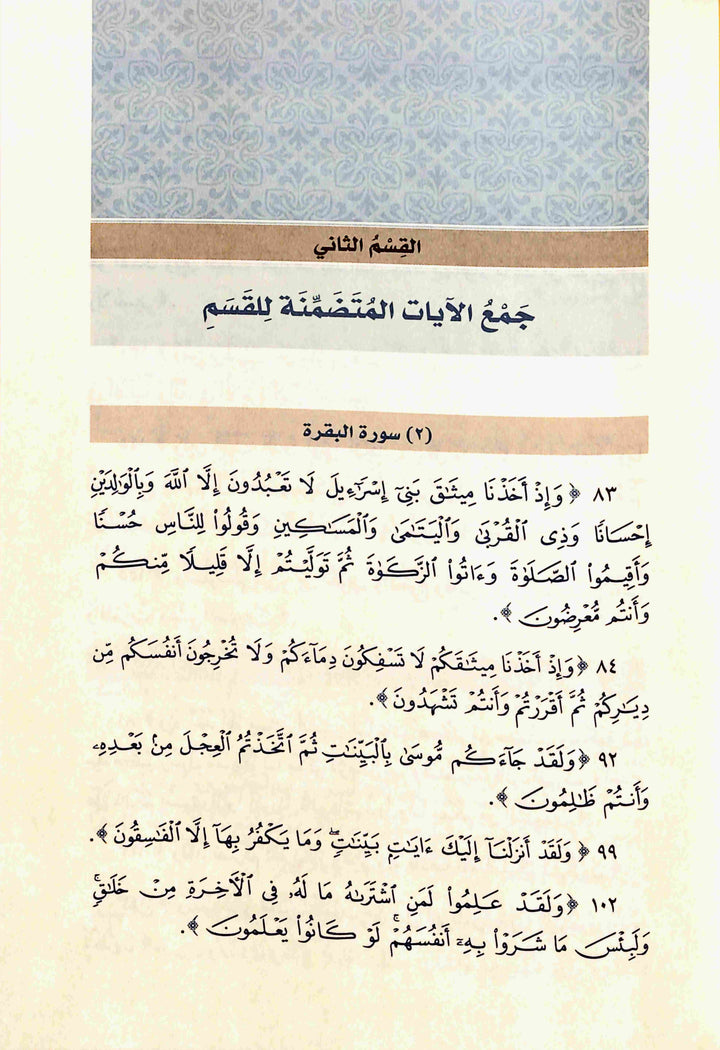 القِسْمُ الثاني
جَمْعُ الآيات المُتَضَمِّنَة لِلقَسَمِ
(٢) سورة البقرة
٨٣ ﴿وَإِذْ أَخَذْنَا مِيثَٰقَ بَنِىٓ إِسْرَٰٓءِيلَ لَا تَعْبُدُونَ إِلَّا ٱللَّهَ وَبِٱلْوَٰلِدَيْنِ
إِحْسَانًا وَذِى ٱلْقُرْبَىٰ وَٱلْيَتَٰمَىٰ وَٱلْمَسَٰكِينِ وَقُولُوا۟ لِلنَّاسِ حُسْنًا
وَأَقِيمُوا۟ ٱلصَّلَوٰةَ وَءَاتُوا۟ ٱلزَّكَوٰةَ ثُمَّ تَوَلَّيْتُمْ إِلَّا قَلِيلًا مِّنكُمْ
وَأَنتُم مُّعْرِضُونَ﴾.
٨٤ ﴿وَإِذْ أَخَذْنَا مِيثَٰقَكُمْ لَا تَسْفِكُونَ دِمَآءَكُمْ وَلَا تُخْرِجُونَ أَنفُسَكُم مِّن
دِيَٰرِكُمْ ثُمَّ أَقْرَرْتُمْ وَأَنتُمْ تَشْهَدُونَ﴾.
٩٢ ﴿وَلَقَدْ جَآءَكُم مُّوسَىٰ بِٱلْبَيِّنَٰتِ ثُمَّ ٱتَّخَذْتُمُ ٱلْعِجْلَ مِنۢ بَعْدِهِۦ
وَأَنتُمْ ظَٰلِمُونَ﴾.
٩٩ ﴿وَلَقَدْ أَنزَلْنَآ إِلَيْكَ ءَايَٰتٍۭ بَيِّنَٰتٍۖ وَمَا يَكْفُرُ بِهَآ إِلَّا ٱلْفَٰسِقُونَ﴾.
١٠٢ ﴿وَلَقَدْ عَلِمُوا۟ لَمَنِ ٱشْتَرَىٰهُ مَا لَهُۥ فِى ٱلْءَاخِرَةِ مِنْ خَلَٰقٍۚ
وَلَبِئْسَ مَا شَرَوْا۟ بِهِۦٓ أَنفُسَهُمْۚ لَوْ كَانُوا۟ يَعْلَمُونَ﴾.